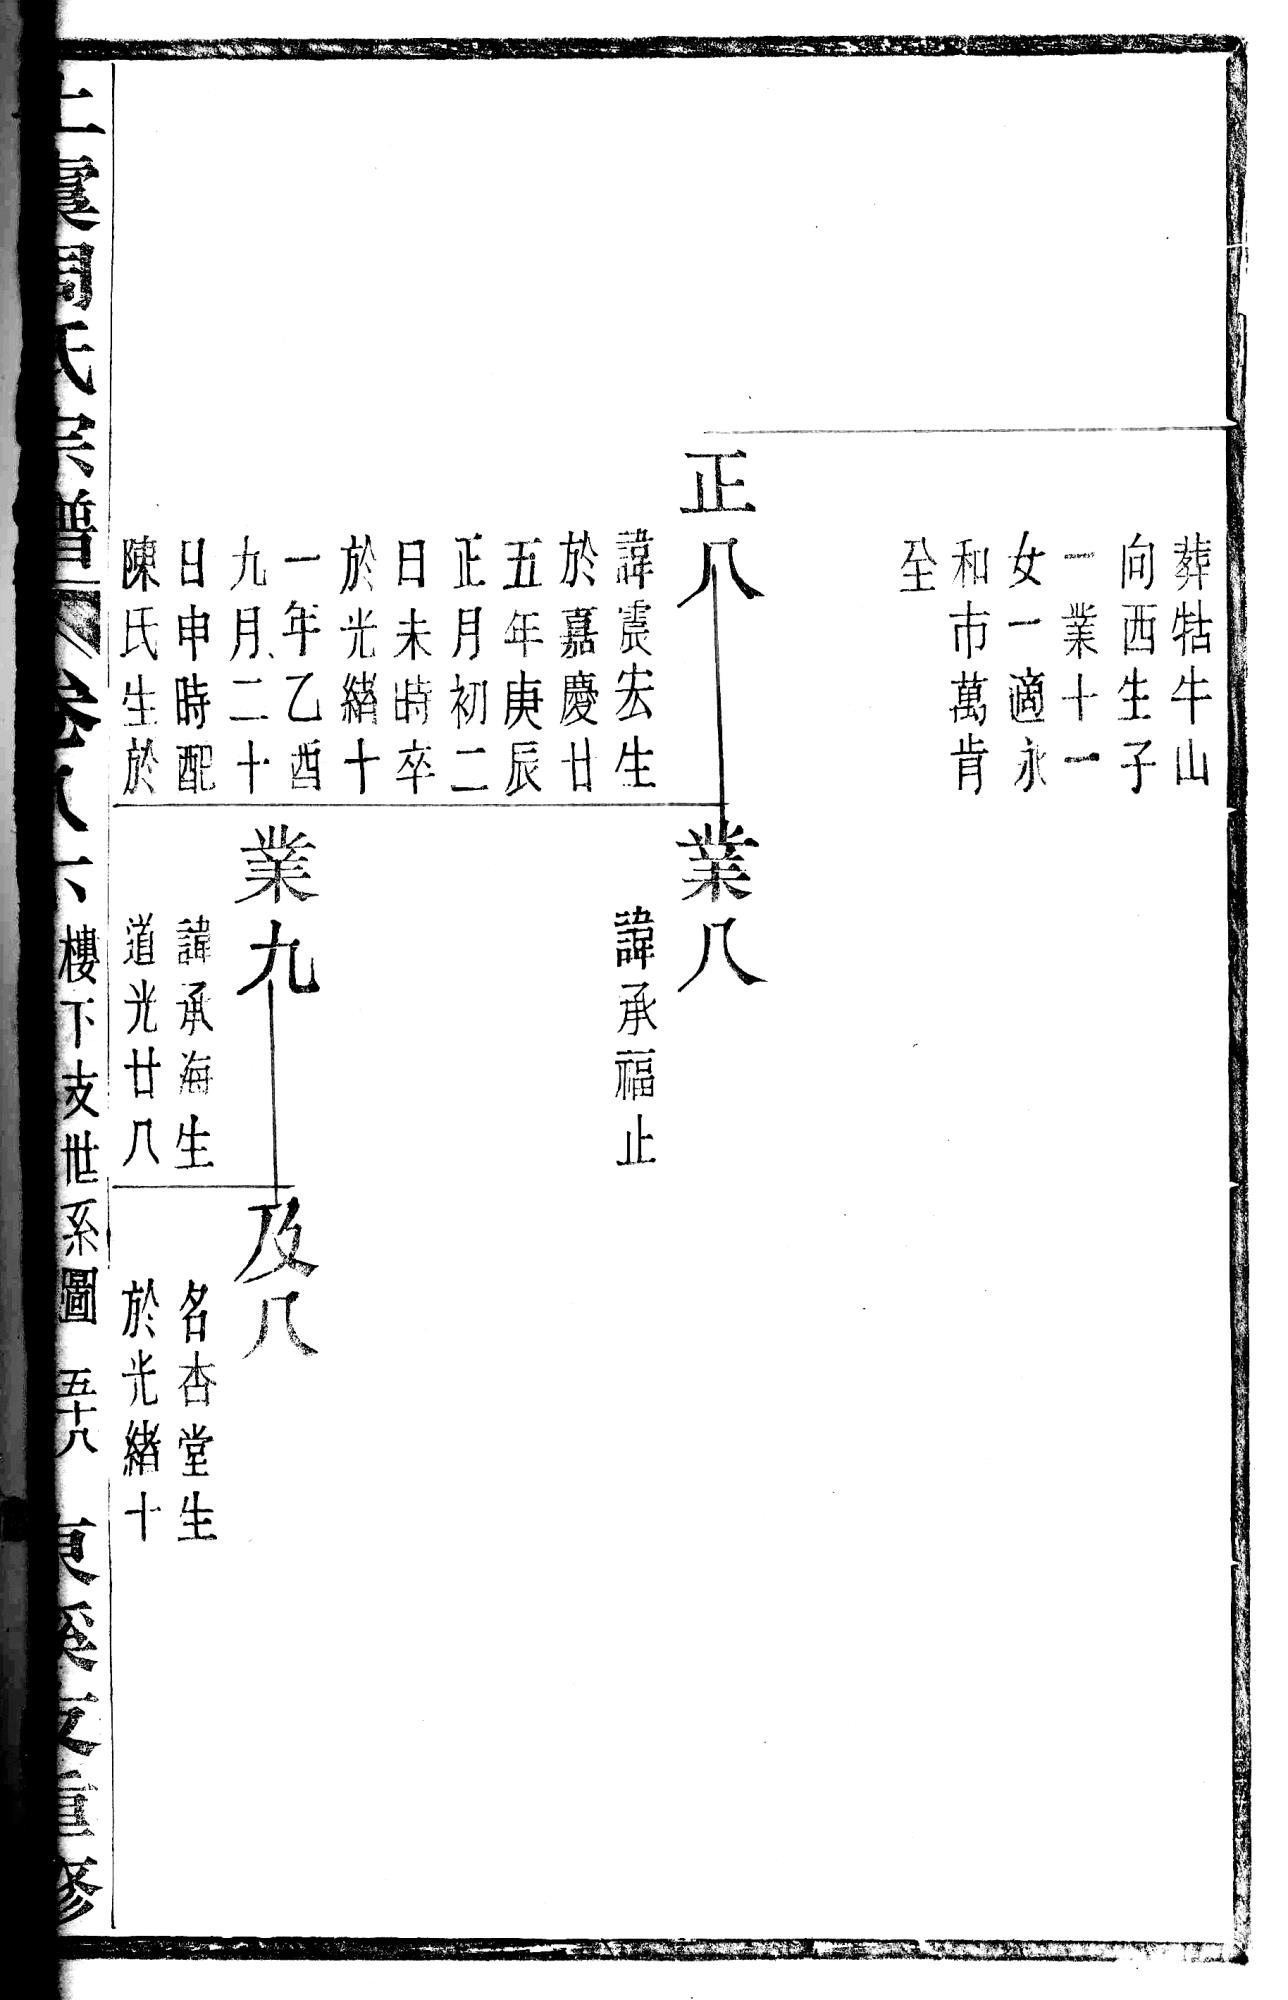 葬牯牛山
向西生子
一業十一
女一適永
和市萬肯
全
正八
諱震宏生
於嘉慶廿
五年庚辰
正月初二
日未時卒
於光緒十
一年乙酉
九月二十
日申時配
陳氏生於
業八
諱承福止
業九
諱承海生
道光廿八
及八
名杏堂生
於光緒十
上虞周氏宗譜 卷八六 樓下支世系圖 五十八 東溪支重修